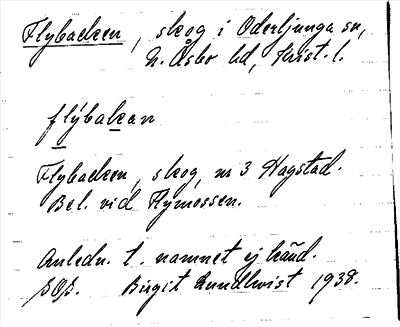 Flybacken, skog i Oderljunga sn,
N. Åsbo hd, Krist. l.
flýbakan
Flybacken, skog, nr 3 Hagstad.
Bel. vid Flymossen.
Anledn. t. namnet ej känd.
Birgit Lundkvist 1938.